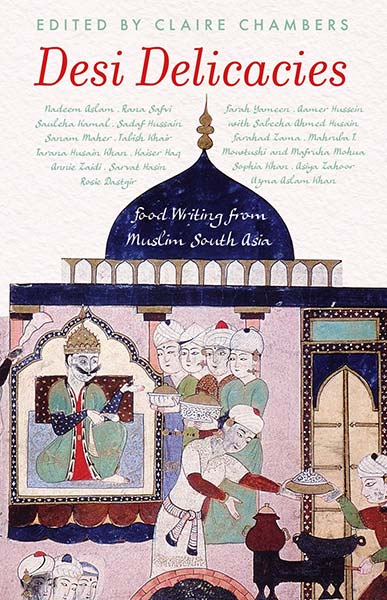 EDITED BY CLAIRE CHAMBERS
Desi Delicacies
Nadeem Aslam . Rana Safvi
Sauleha Kamal . Sadaf Hussain
Sanam Maher . Tabish Khair
Tarana Husain Khan . Kaiser Haq
Annie Zaidi . Sarvat Hasin
Rosie Dastgir
Sarah Yameen . Aamer Hussein
with Sabeeha Ahmed Husain
Farahad Zama . Mahruba T.
Mowtushi and Mafruha Mohua
Sophia Khan . Asiya Zahoor
Ayna Aslam Khan
Food Writing from
Muslim South Asia